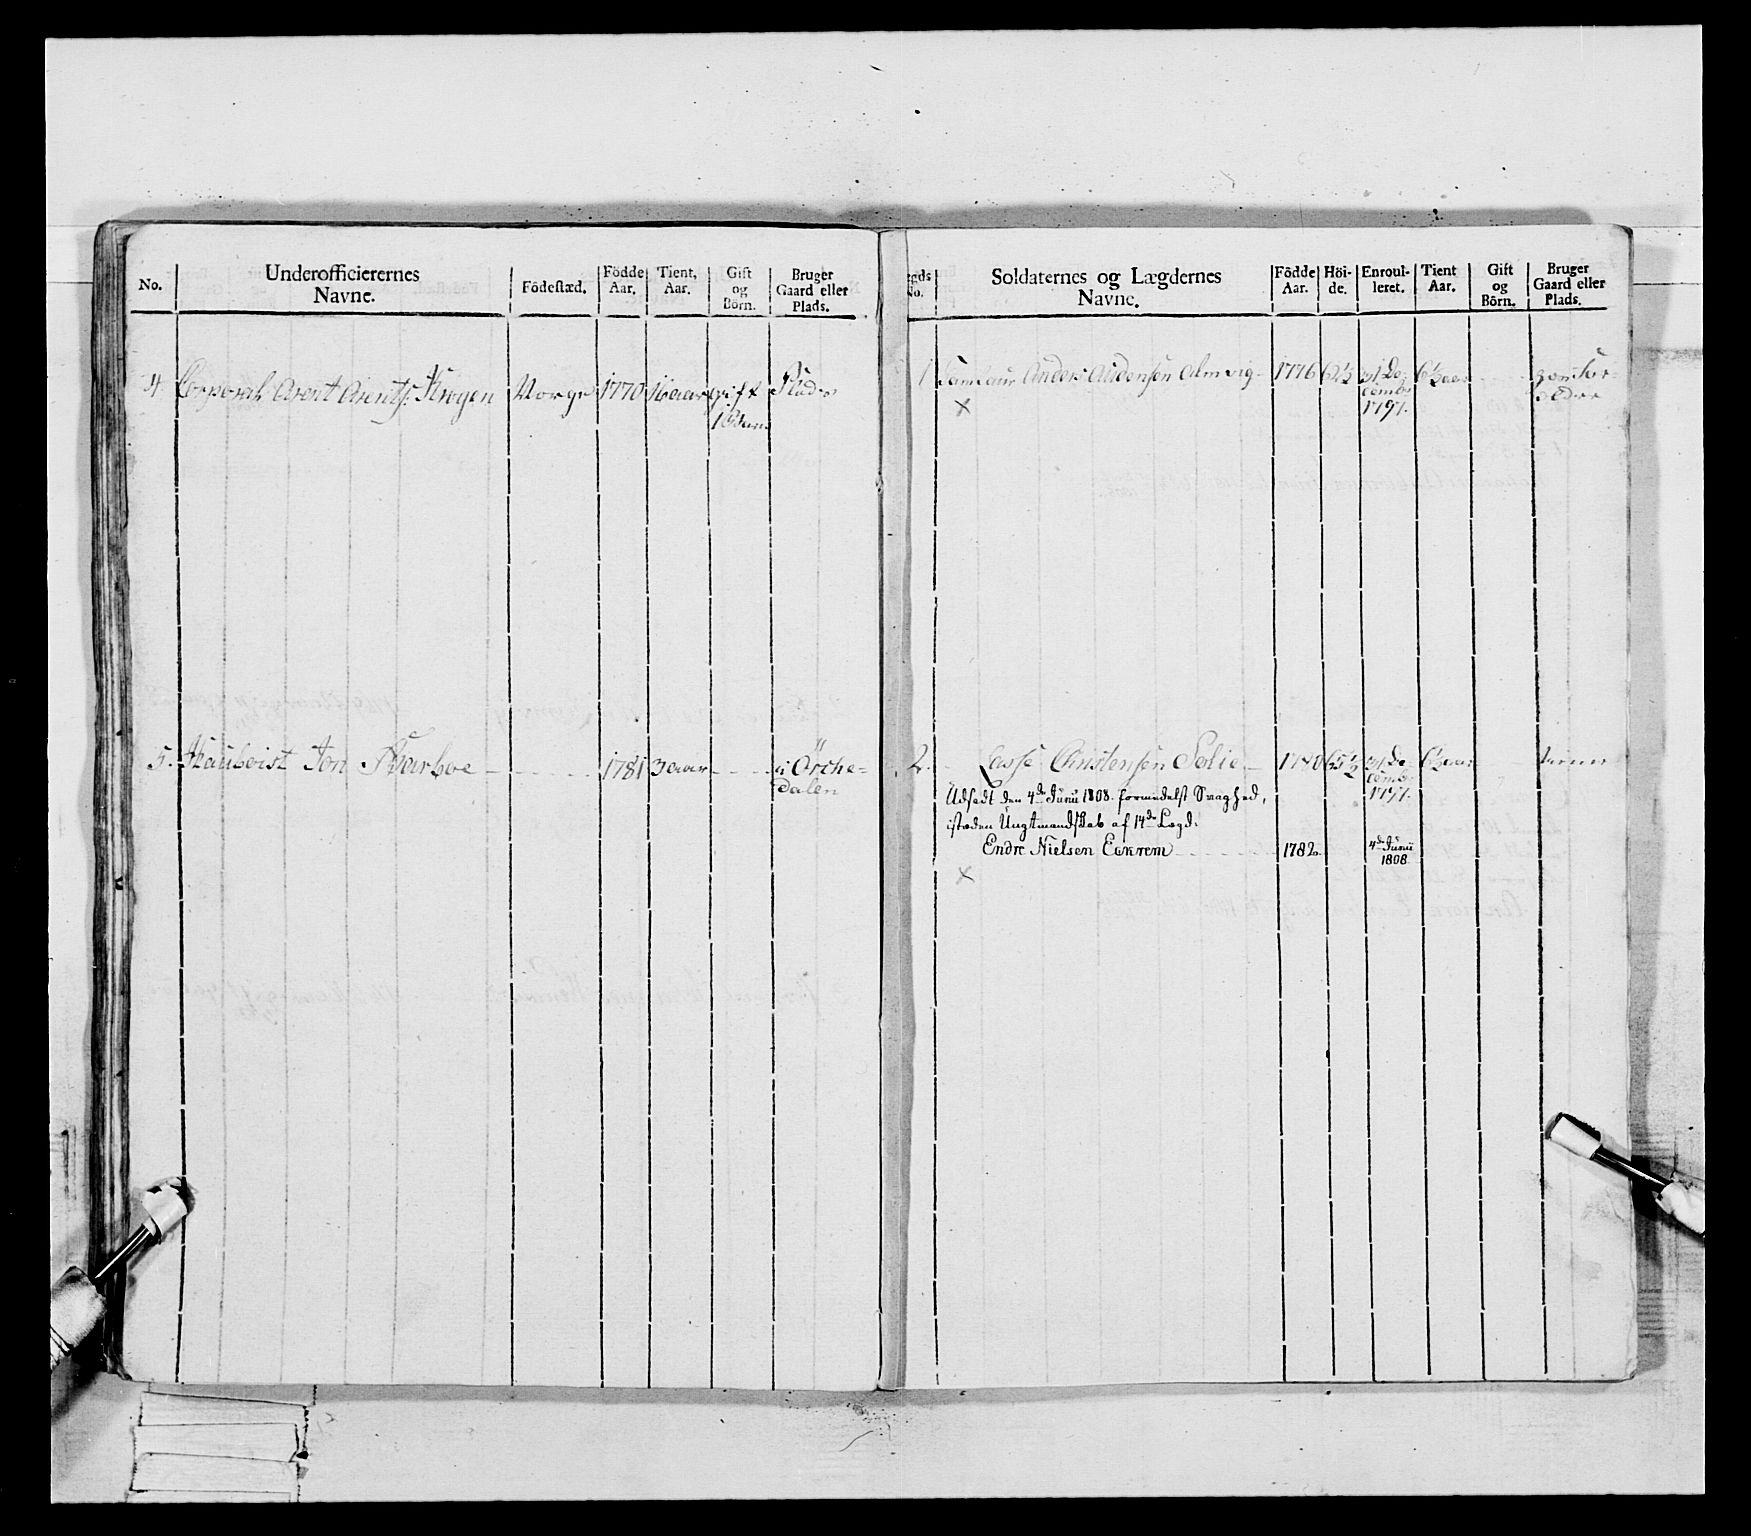 No.
Underofficierernes
Navne.
Födeſtæd.
Födde
Aar.
Tient,
Aar.
Gift
og
Börn.
Bruger
Gaard eller
Plads.
4. Corporal Arent Arents: Krogen Norge 1770 16 aar gift
1 Barn
5. Hauboist Jon 1781 3 aar i Örche=
dalen
No.
Soldaternes og Lægdernes
Navne.
Födde
Aar.
Höi-
de.
Enroul-
leret.
Tient
Aar.
Gift
og
Börn.
Bruger
Gaard eller
Plads.
1 Tambur Anders Audensen Almvig 1776 62½ 31 De- 6½ aar
cembr
1797.
x
2. Lasse Christensen Solie 1780 65½ 31 De- 6½ aar
cembr
1797.
Udsadt den 4de Junii 1808. formedelst Svaghed,
isteden Ungtmandskab af 14de Lægd:
Endre Nielsen Eckrem 1782. 4de Junii
1808
x